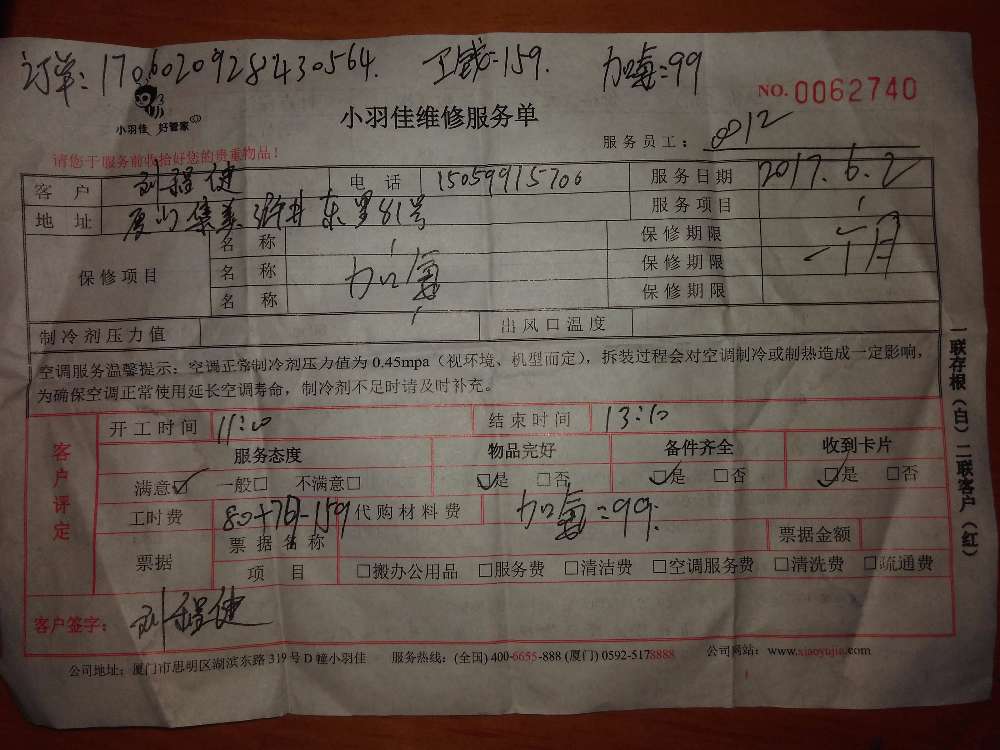 订单:170602092812430564. 159. 加氟=99
NO.0062740
小羽佳 好管家
小羽佳维修服务单
服务员工: 0812
请您于服务前收拾好您的贵重物品!
客户 刘程健 电话 15059915706 服务日期 2017.6.2
地址 厦门集美浒井东里81号 服务项目
保修项目 名称 保修期限
名称 加氟 保修期限 一个月
名称 保修期限
制冷剂压力值 出风口温度
空调服务温馨提示:空调正常制冷剂压力值为 0.45mpa(视环境、机型而定),拆装过程会对空调制冷或制热造成一定影响,
为确保空调正常使用延长空调寿命,制冷剂不足时请及时补充。
一联存根(白)二联客户(红)
客户评定
开工时间 11:00 结束时间 13:10
服务态度 物品完好 备件齐全 收到卡片
满意☑ 一般□ 不满意□ ☑是 □否 ☑是 □否 ☑是 □否
工时费 159 代购材料费 加氟=99.
票据 票据名称 票据金额
项目 □搬办公用品 □服务费 □清洁费 □空调服务费 □清洗费 □疏通费
客户签字: 刘程健
公司地址:厦门市思明区湖滨东路 319 号 D 幢小羽佳 服务热线:(全国) 400-6655-888 (厦门) 0592-5178888 公司网站:www.xiaoyujia.com